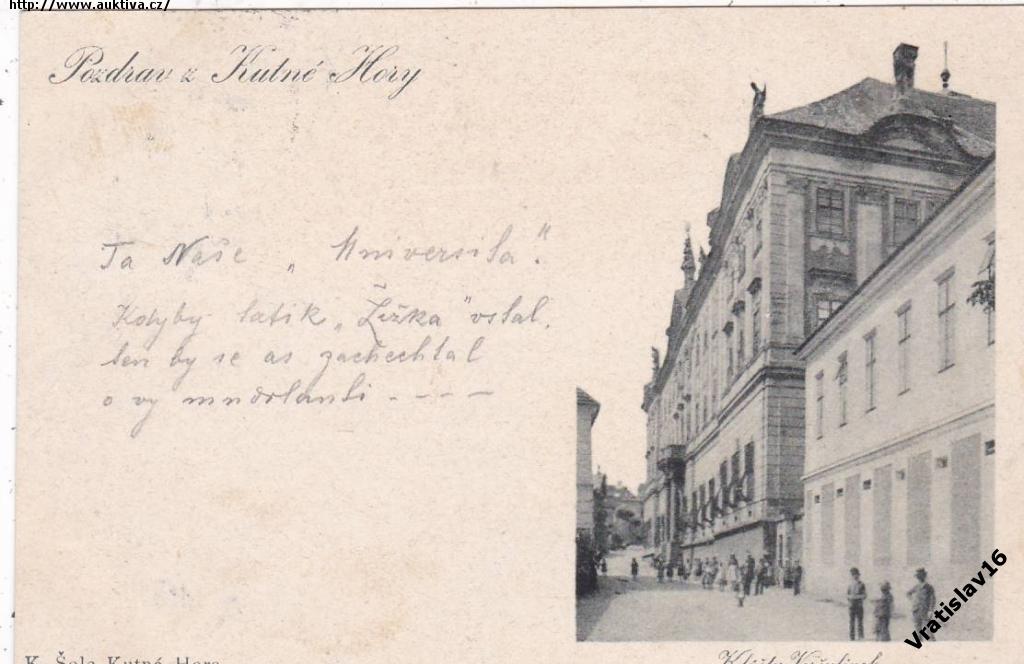 http://www.auktiva.cz/
Pozdrav z Kutné Hory
Ta Naše „Universita".
Kdyby tatik „Žižka" vstal,
ten by se as zachechtal
o vy mudrlanti - - - -
K. Šolc Kutná Hora
Vratislav16